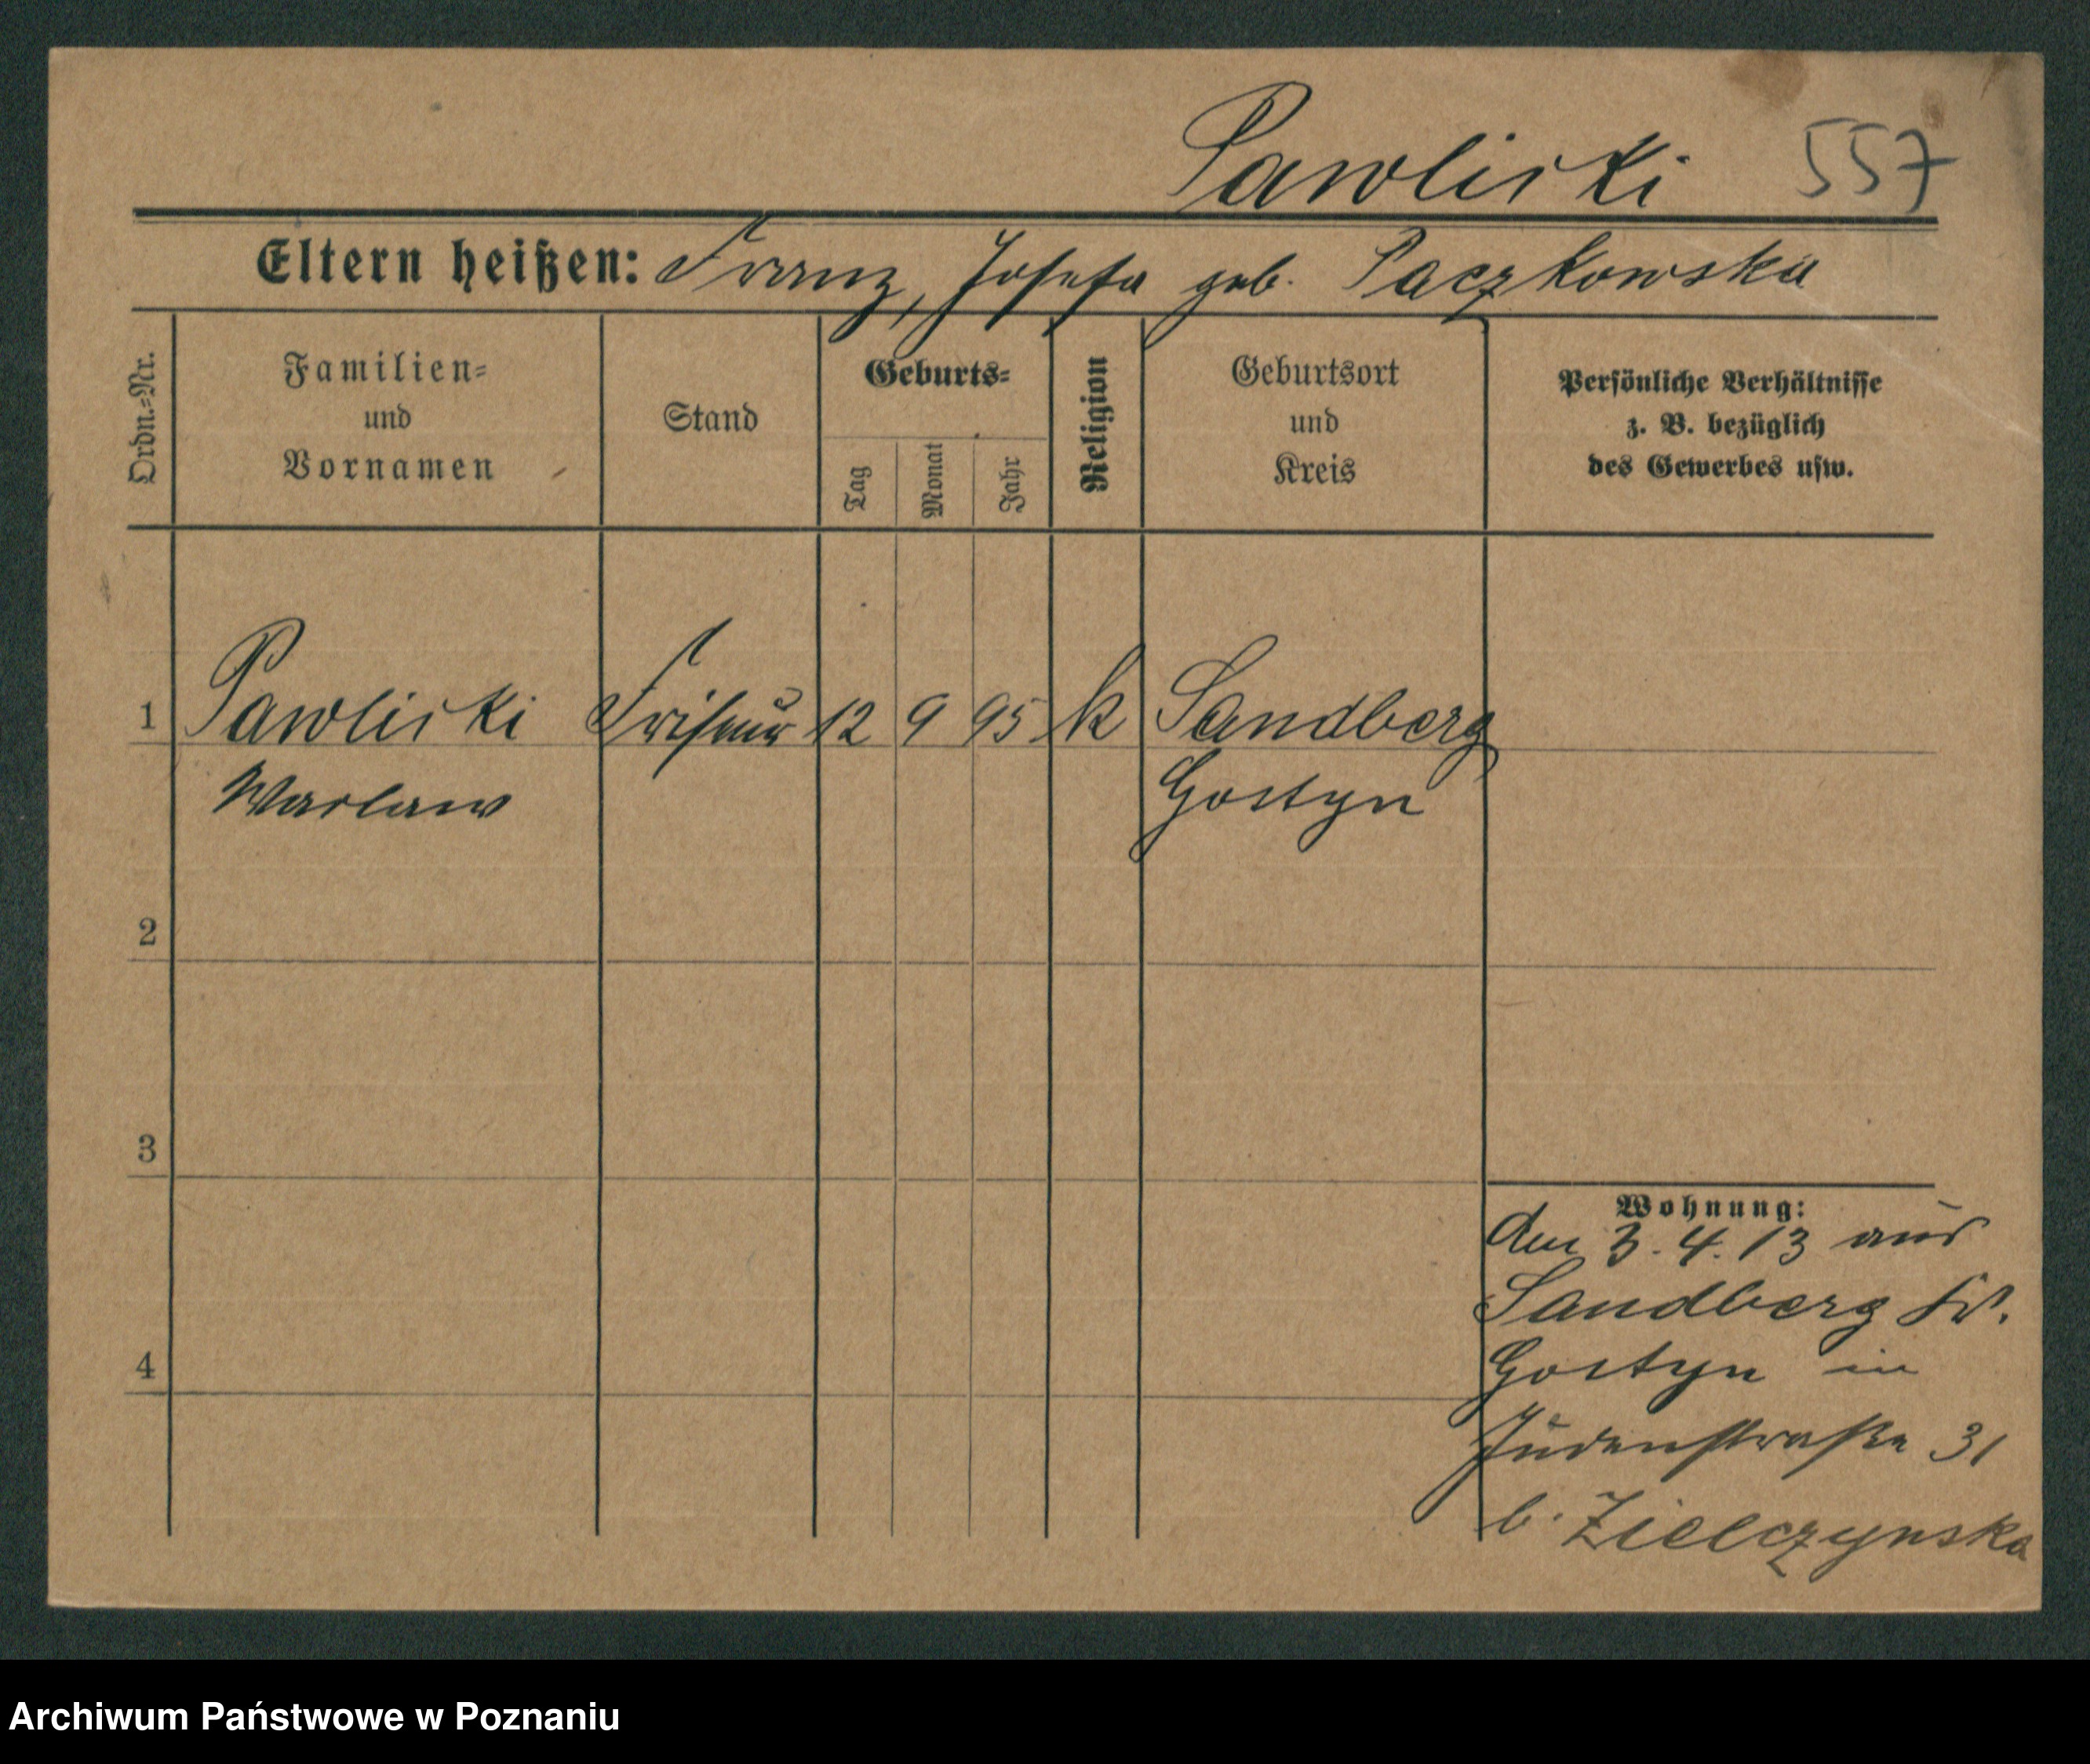 Pawlicki 557
Eltern heißen: Franz, Josefa geb. Paczkowska
Ordn.-Nr.
Familien-
und
Vornamen
Stand
Geburts-
Tag
Monat
Jahr
Religion
Geburtsort
und
Kreis
Persönliche Verhältnisse
z. B. bezüglich
des Gewerbes usw.
1 Pawlicki Friseur 12 9 95 k Sandberg
Waclaw Gostyn
2
3
4
Wohnung:
Am 3.4.13 aus
Sandberg Kr.
Gostyn in
Judenstraße 31
b. Zielczynska
Archiwum Państwowe w Poznaniu